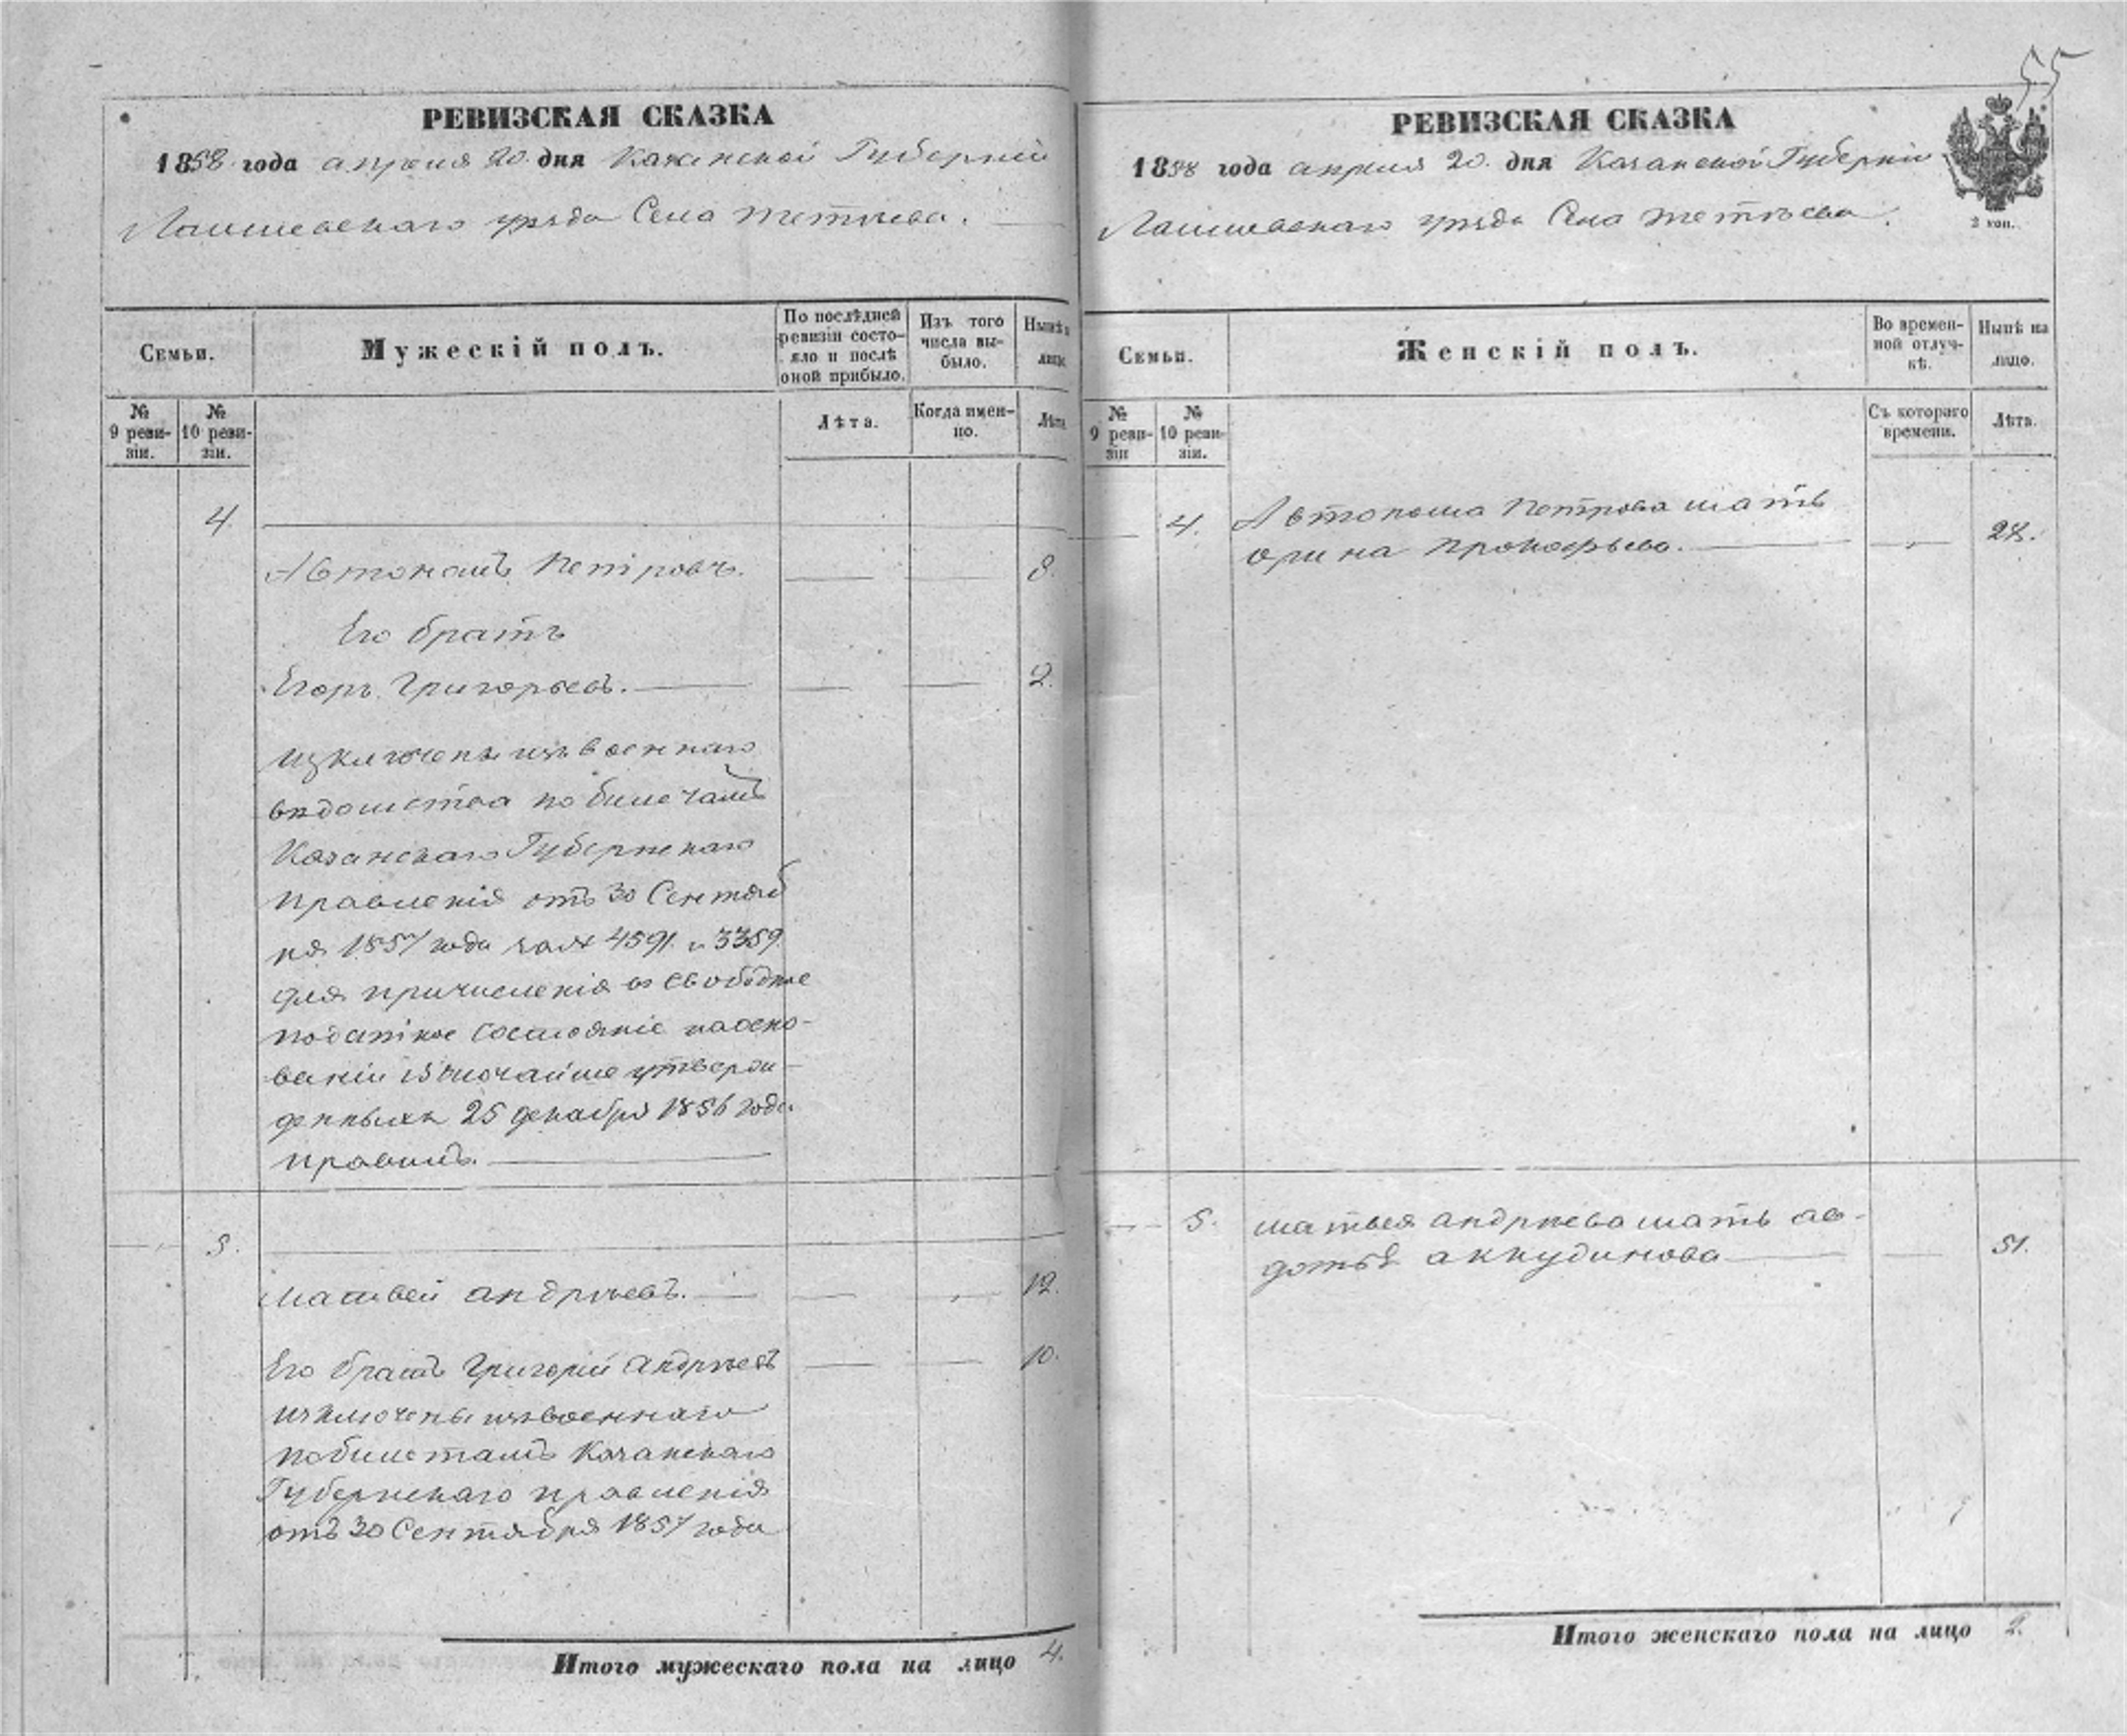 55
РЕВИЗСКАЯ СКАЗКА
1858 года апреля 20 дня Казанской Губерніи
Лаишевскаго уѣзда Села Тетѣева.
Семьи.
Мужескій полъ.
По послѣдней ревизіи состо-яло и послѣ оной прибыло.
Изъ того числа вы-было.
Нынѣ на лицо.
№ 9 реви-зіи.
№ 10 реви-зіи.
Лѣта.
Когда имен-но.
Лѣта
4
Автономъ Петровъ. 8.
Его братъ
Егоръ Григорьевъ. 2.
Изключены изъ военнаго
вѣдомства по билетамъ
Казанскаго Губернскаго
Правленія отъ 30 Сентяб
ря 1857 года за № 4591. и 3359.
для причисленія въ свободное
податное состояніе на осно-
ваніи Высочайше утверж-
денныхъ 25 декабря 1856 года
правилъ.
5.
Матвей Андрѣевъ. 12.
Его братъ Григорій Андрѣевъ 10.
изключены изъ военнаго
по билетамъ Казанскаго
Губернскаго правленія
отъ 30 Сентября 1857 года
Итого мужескаго пола на лицо 4.
РЕВИЗСКАЯ СКАЗКА
1858 года апреля 20. дня Казанской Губерніи
Лаишевскаго уѣзда Села Тетѣева.
2 коп.
Семьи.
Женскій полъ.
Во времен-ной отлуч-кѣ.
Нынѣ на лицо.
№ 9 реви-зіи
№ 10 реви-зіи.
Съ котораго времени.
Лѣта.
4. Автонома Петрова мать
Орина Прокофьева. 28.
5. Матвея Андрѣева мать Ав-
дотья Анкудинова 51.
Итого женскаго пола на лицо 2.